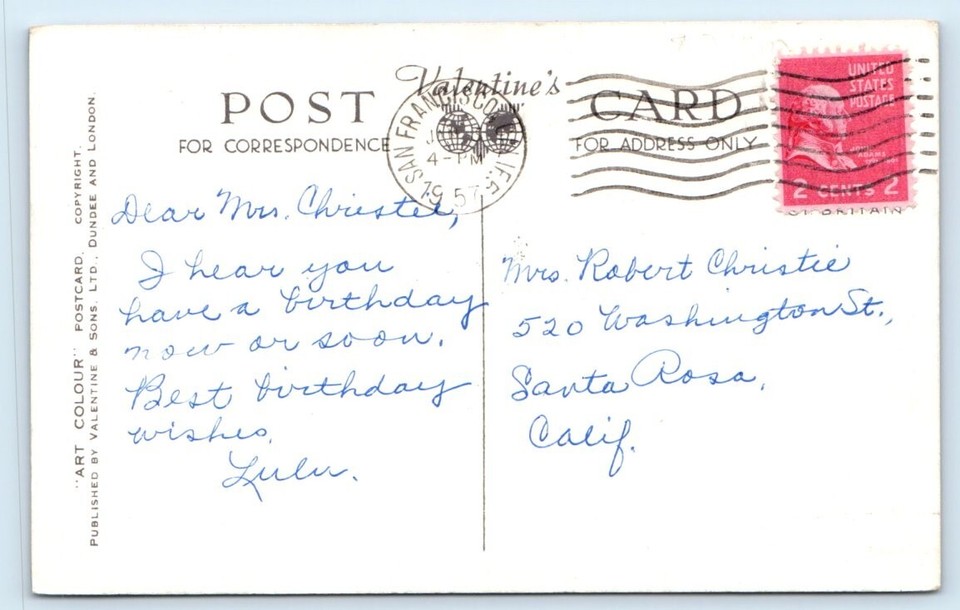 "ART COLOUR" POSTCARD. COPYRIGHT.
PUBLISHED BY VALENTINE & SONS. LTD., DUNDEE AND LONDON.
Valentine's
POST CARD
FOR CORRESPONDENCE
FOR ADDRESS ONLY
SAN FRANCISCO CALIF.
4-PM
1957
UNITED
STATES
POSTAGE
JOHN
ADAMS
2 CENTS 2
BRITAIN
Dear Mrs. Christie,
I hear you
have a birthday
now or soon.
Best birthday
wishes,
Lulu.
Mrs. Robert Christie
520 Washington St.,
Santa Rosa,
Calif.